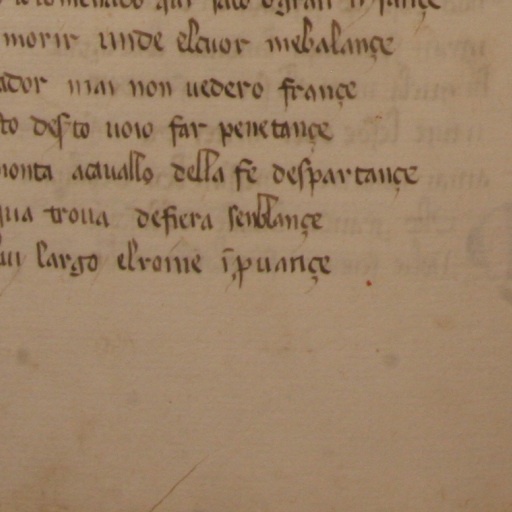 morir unde elcuor mebalançe
ador mai non uedero françe
to desto uoio far penetançe
monta acauallo della fe despartançe
ua troua defiera senblançe
lui largo elrome ĩ puançe